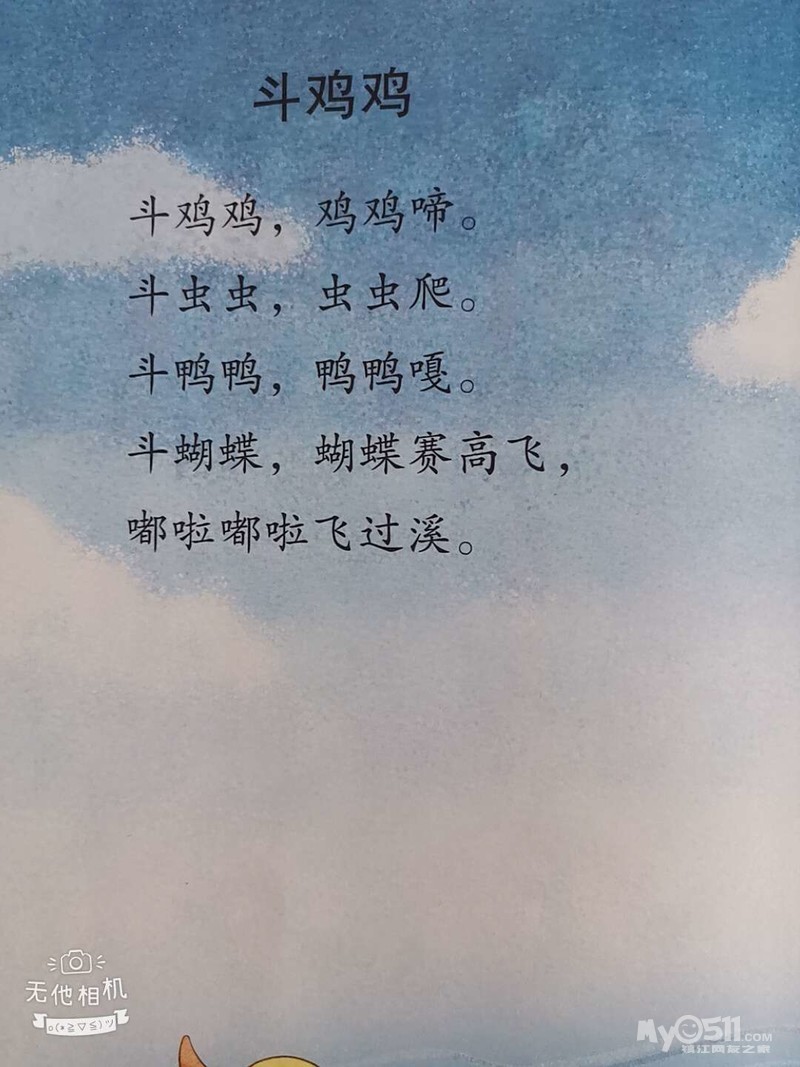 斗鸡鸡
斗鸡鸡，鸡鸡啼。
斗虫虫，虫虫爬。
斗鸭鸭，鸭鸭嘎。
斗蝴蝶，蝴蝶赛高飞，
嘟啦嘟啦飞过溪。
无他相机
o(*≧▽≦)ツ
My0511.COM
镜江网友之家